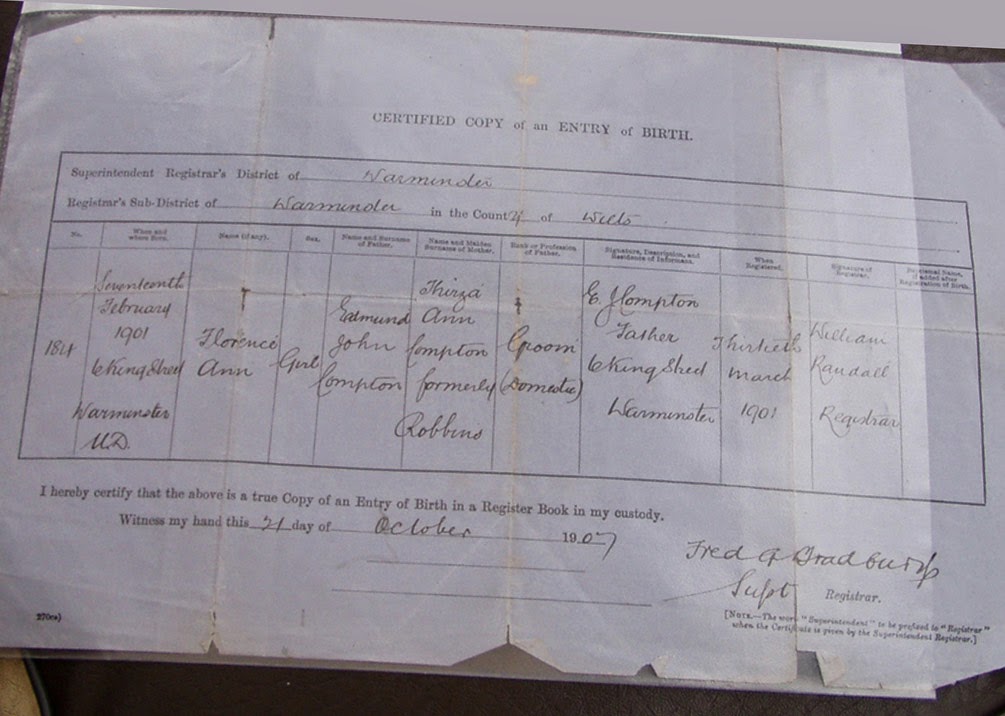 CERTIFIED COPY of an ENTRY of BIRTH.
Superintendent Registrar's District of Warminster
Registrar's Sub-District of Warminster in the County of Wilts
No. When and where Born. Name (if any). Sex. Name and Surname of Father. Name and Maiden Surname of Mother. Rank or Profession of Father. Signature, Description, and Residence of Informant. When Registered. Signature of Registrar. Baptismal Name, if added after Registration of Birth.
184
Seventeenth
February
1901
6 King Street
Warminster
U.D.
Florence
Ann
Girl
Edmund
John
Compton
Thirza
Ann
Compton
formerly
Robbins
Groom
(Domestic)
E. J Compton
Father
6 King Street
Warminster
Thirtieth
March
1901
William
Randall
Registrar
I hereby certify that the above is a true Copy of an Entry of Birth in a Register Book in my custody.
Witness my hand this 21 day of October 1907
Fred G Bradbury
Supt Registrar.
[NOTE.—The word "Superintendent" to be prefixed to "Registrar"
when the Certificate is given by the Superintendent Registrar.]